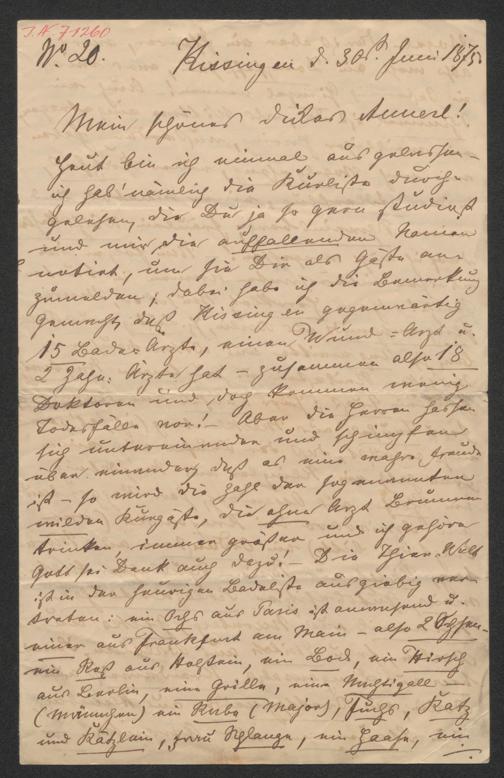 I.N. 71260
No. 20.
Kissingen d. 30t. Juni 1875.
Mein schönes dickes Annerl!
Heut bin ich einmal ausgelassen –
ich hab' nämlich die Kurliste durch-
gelesen, die Du ja so gern studierst
und mir die auffallenden Namen
notirt, um sie Dir als Gäste an-
zumelden; dabei habe ich die Bemerkung
gemacht, daß Kissingen gegenwärtig
15 Bade-Ärzte, einen Wund-Arzt u.
2 Zahn-Ärzte hat – zusammen also 18
Doktoren und doch kommen wenig
Todesfälle vor! – Aber die Herren hassen
sich untereinander und schimpfen
über einander, daß es eine wahre Freude
ist – so wird die Zahl der sogenannten
wilden Kurgäste, die ohne Arzt Brunnen
trinken, immer größer und ich gehöre
Gott sei Dank auch dazu! – Die Thier-Welt
ist in der heurigen Badeliste ausgiebig ver-
treten: ein Ochs aus Paris ist anwesend u.
einer aus Frankfurt am Main – also 2 Ochsen –
ein Roß aus Holstein, ein Bock, ein Hirsch
aus Berlin, eine Grille, eine Nachtigall –
(Männchen) ein Rabe (Major), Fuchs, Katz
und Kätzlein, Frau Schlange, ein Haase, ein